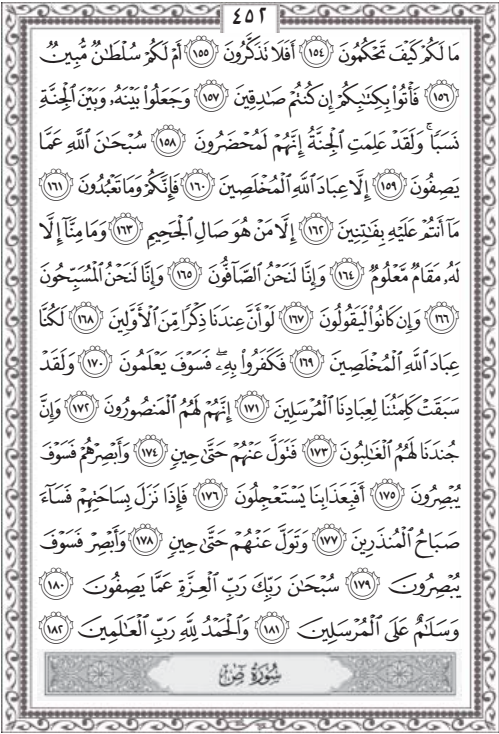 ٤٥٢
مَا لَكُمْ كَيْفَ تَحْكُمُونَ ١٥٤ أَفَلَا تَذَكَّرُونَ ١٥٥ أَمْ لَكُمْ سُلْطَانٌ مُّبِينٌ
١٥٦ فَأْتُوا۟ بِكِتَابِكُمْ إِن كُنتُمْ صَادِقِينَ ١٥٧ وَجَعَلُوا۟ بَيْنَهُۥ وَبَيْنَ الْجِنَّةِ
نَسَبًا ۚ وَلَقَدْ عَلِمَتِ الْجِنَّةُ إِنَّهُمْ لَمُحْضَرُونَ ١٥٨ سُبْحَانَ اللَّهِ عَمَّا
يَصِفُونَ ١٥٩ إِلَّا عِبَادَ اللَّهِ الْمُخْلَصِينَ ١٦٠ فَإِنَّكُمْ وَمَا تَعْبُدُونَ ١٦١
مَآ أَنتُمْ عَلَيْهِ بِفَاتِنِينَ ١٦٢ إِلَّا مَنْ هُوَ صَالِ الْجَحِيمِ ١٦٣ وَمَا مِنَّآ إِلَّا
لَهُۥ مَقَامٌ مَّعْلُومٌ ١٦٤ وَإِنَّا لَنَحْنُ الصَّآفُّونَ ١٦٥ وَإِنَّا لَنَحْنُ الْمُسَبِّحُونَ
١٦٦ وَإِن كَانُوا۟ لَيَقُولُونَ ١٦٧ لَوْ أَنَّ عِندَنَا ذِكْرًا مِّنَ الْأَوَّلِينَ ١٦٨ لَكُنَّا
عِبَادَ اللَّهِ الْمُخْلَصِينَ ١٦٩ فَكَفَرُوا۟ بِهِۦ ۖ فَسَوْفَ يَعْلَمُونَ ١٧٠ وَلَقَدْ
سَبَقَتْ كَلِمَتُنَا لِعِبَادِنَا الْمُرْسَلِينَ ١٧١ إِنَّهُمْ لَهُمُ الْمَنصُورُونَ ١٧٢ وَإِنَّ
جُندَنَا لَهُمُ الْغَالِبُونَ ١٧٣ فَتَوَلَّ عَنْهُمْ حَتَّىٰ حِينٍ ١٧٤ وَأَبْصِرْهُمْ فَسَوْفَ
يُبْصِرُونَ ١٧٥ أَفَبِعَذَابِنَا يَسْتَعْجِلُونَ ١٧٦ فَإِذَا نَزَلَ بِسَاحَتِهِمْ فَسَآءَ
صَبَاحُ الْمُنذَرِينَ ١٧٧ وَتَوَلَّ عَنْهُمْ حَتَّىٰ حِينٍ ١٧٨ وَأَبْصِرْ فَسَوْفَ
يُبْصِرُونَ ١٧٩ سُبْحَانَ رَبِّكَ رَبِّ الْعِزَّةِ عَمَّا يَصِفُونَ ١٨٠
وَسَلَامٌ عَلَى الْمُرْسَلِينَ ١٨١ وَالْحَمْدُ لِلَّهِ رَبِّ الْعَالَمِينَ ١٨٢
سُورَةُ صٓ